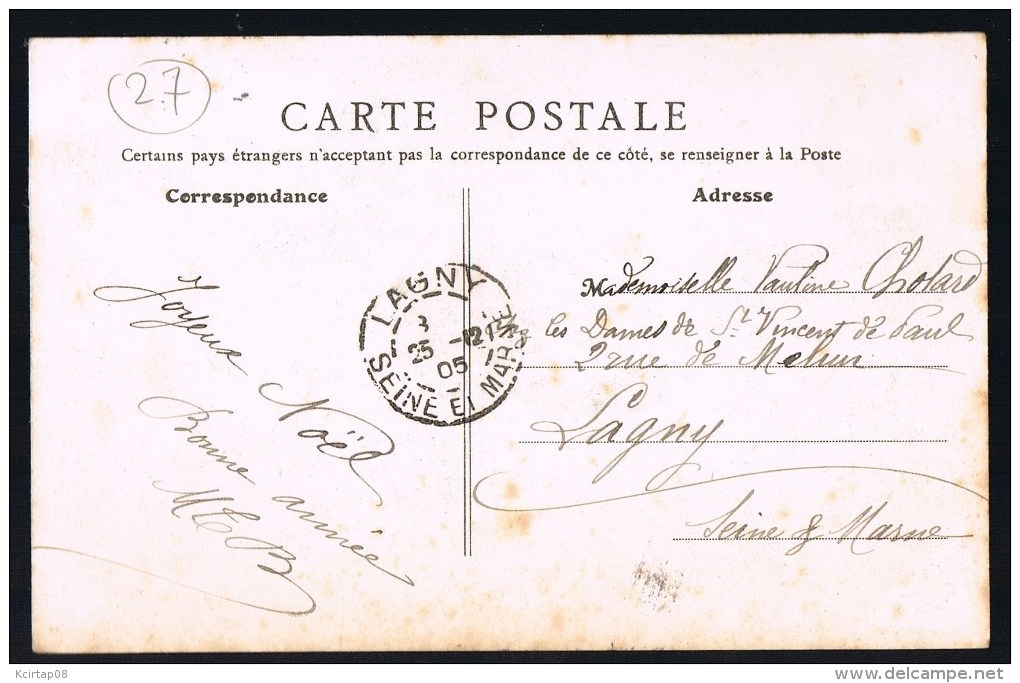 27
CARTE POSTALE
Certains pays étrangers n'acceptant pas la correspondance de ce côté, se renseigner à la Poste
Correspondance
Adresse
Joyeux Noël
Bonne année
MCB
LAGNY
3
25 -12
05
SEINE ET MARNE
Mademoiselle Pauline
les Dames de St. Vincent de Paul
2 rue de Melun
Lagny
Seine & Marne
Kcirtap08
www.delcampe.net